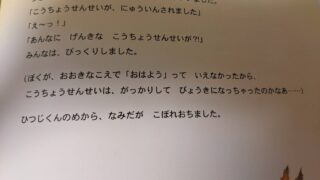 「こうちょうせんせいが、にゅういんされました」
「え〜っ！」
「あんなに　げんきな　こうちょうせんせいが?!」
みんなは、びっくりしました。
（ぼくが、おおきなこえで「おはよう」って　いえなかったから、
こうちょうせんせいは、がっかりして　びょうきになっちゃったのかなあ……）
ひつじくんのめから、なみだが　こぼれおちました。